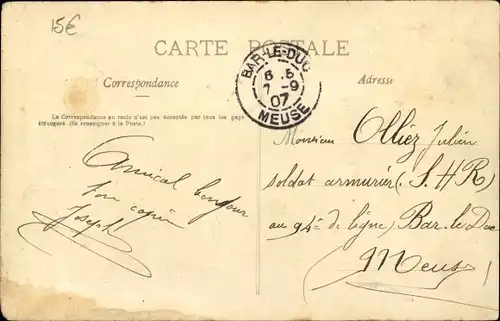 15€
CARTE POSTALE
BAR-LE-DUC
6 5
7 -9
07
MEUSE
Correspondance
Adresse
La Correspondance au recto n'est pas acceptée par tous les pays
étrangers. (Se renseigner à la Poste.)
Amical bonjour
ton copain
Joseph
Monsieur Olliez Julien
soldat armurier (S.H.R)
au 94e de ligne) Bar le Duc
Meuse